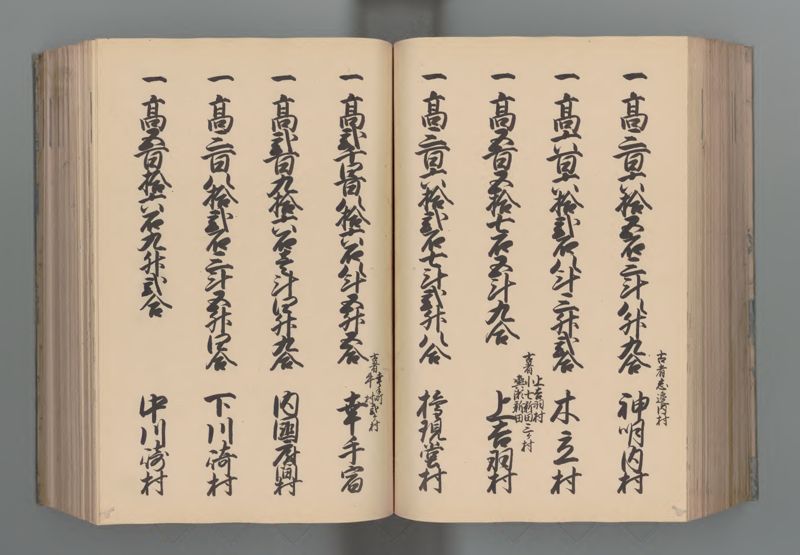 一 高三百六拾五石三斗八升九合
古者志邉内村
神明内村
一 高六百六拾弐石八斗三升弐合
木立村
一 高五百五拾七石五斗九合
古者 上吉羽村 七新田 新田 三ヶ村
上吉羽村
一 高三百六拾弐石七斗弐升八合
権現堂村
一 高弐千四百八拾六石八斗五升五合
古者 幸手町 牛村 弐ヶ村
幸手宿
一 高弐百九拾六石壱斗四升九合
内国府間村
一 高三百八拾弐石三斗五升四合
下川崎村
一 高五百拾六石九升弐合
中川崎村